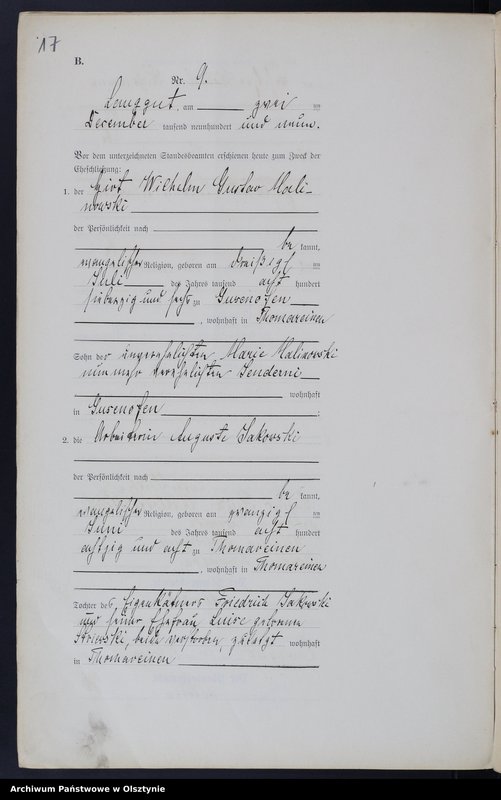 17
B.
Nr. 9.
Langgut, am zwei ten
December tausend neunhundert und neun.
Vor dem unterzeichneten Standesbeamten erschienen heute zum Zweck der
Eheschließung:
1. der Hirt Wilhelm Gustav Mali-
nowski
der Persönlichkeit nach
be kannt,
evangelischer Religion, geboren am dreißigst ten
Juli des Jahres tausend acht hundert
siebenzig und sechs zu Gusenofen
, wohnhaft in Thomareinen
Sohn der unverehelichten Marie Malinowski
nunmehr verehelichten
wohnhaft
in Gusenofen.
2. die Arbeiterin Auguste Sakowski
der Persönlichkeit nach
be kannt,
evangelischer Religion, geboren am zwanzigst ten
Juni des Jahres tausend acht hundert
achtzig und acht zu Thomareinen
, wohnhaft in Thomareinen
Tochter des Eigenkätners Friedrich Sakowski
und seiner Ehefrau Luise geborenen
beide verstorben, zuletzt wohnhaft
in Thomareinen
Archiwum Państwowe w Olsztynie